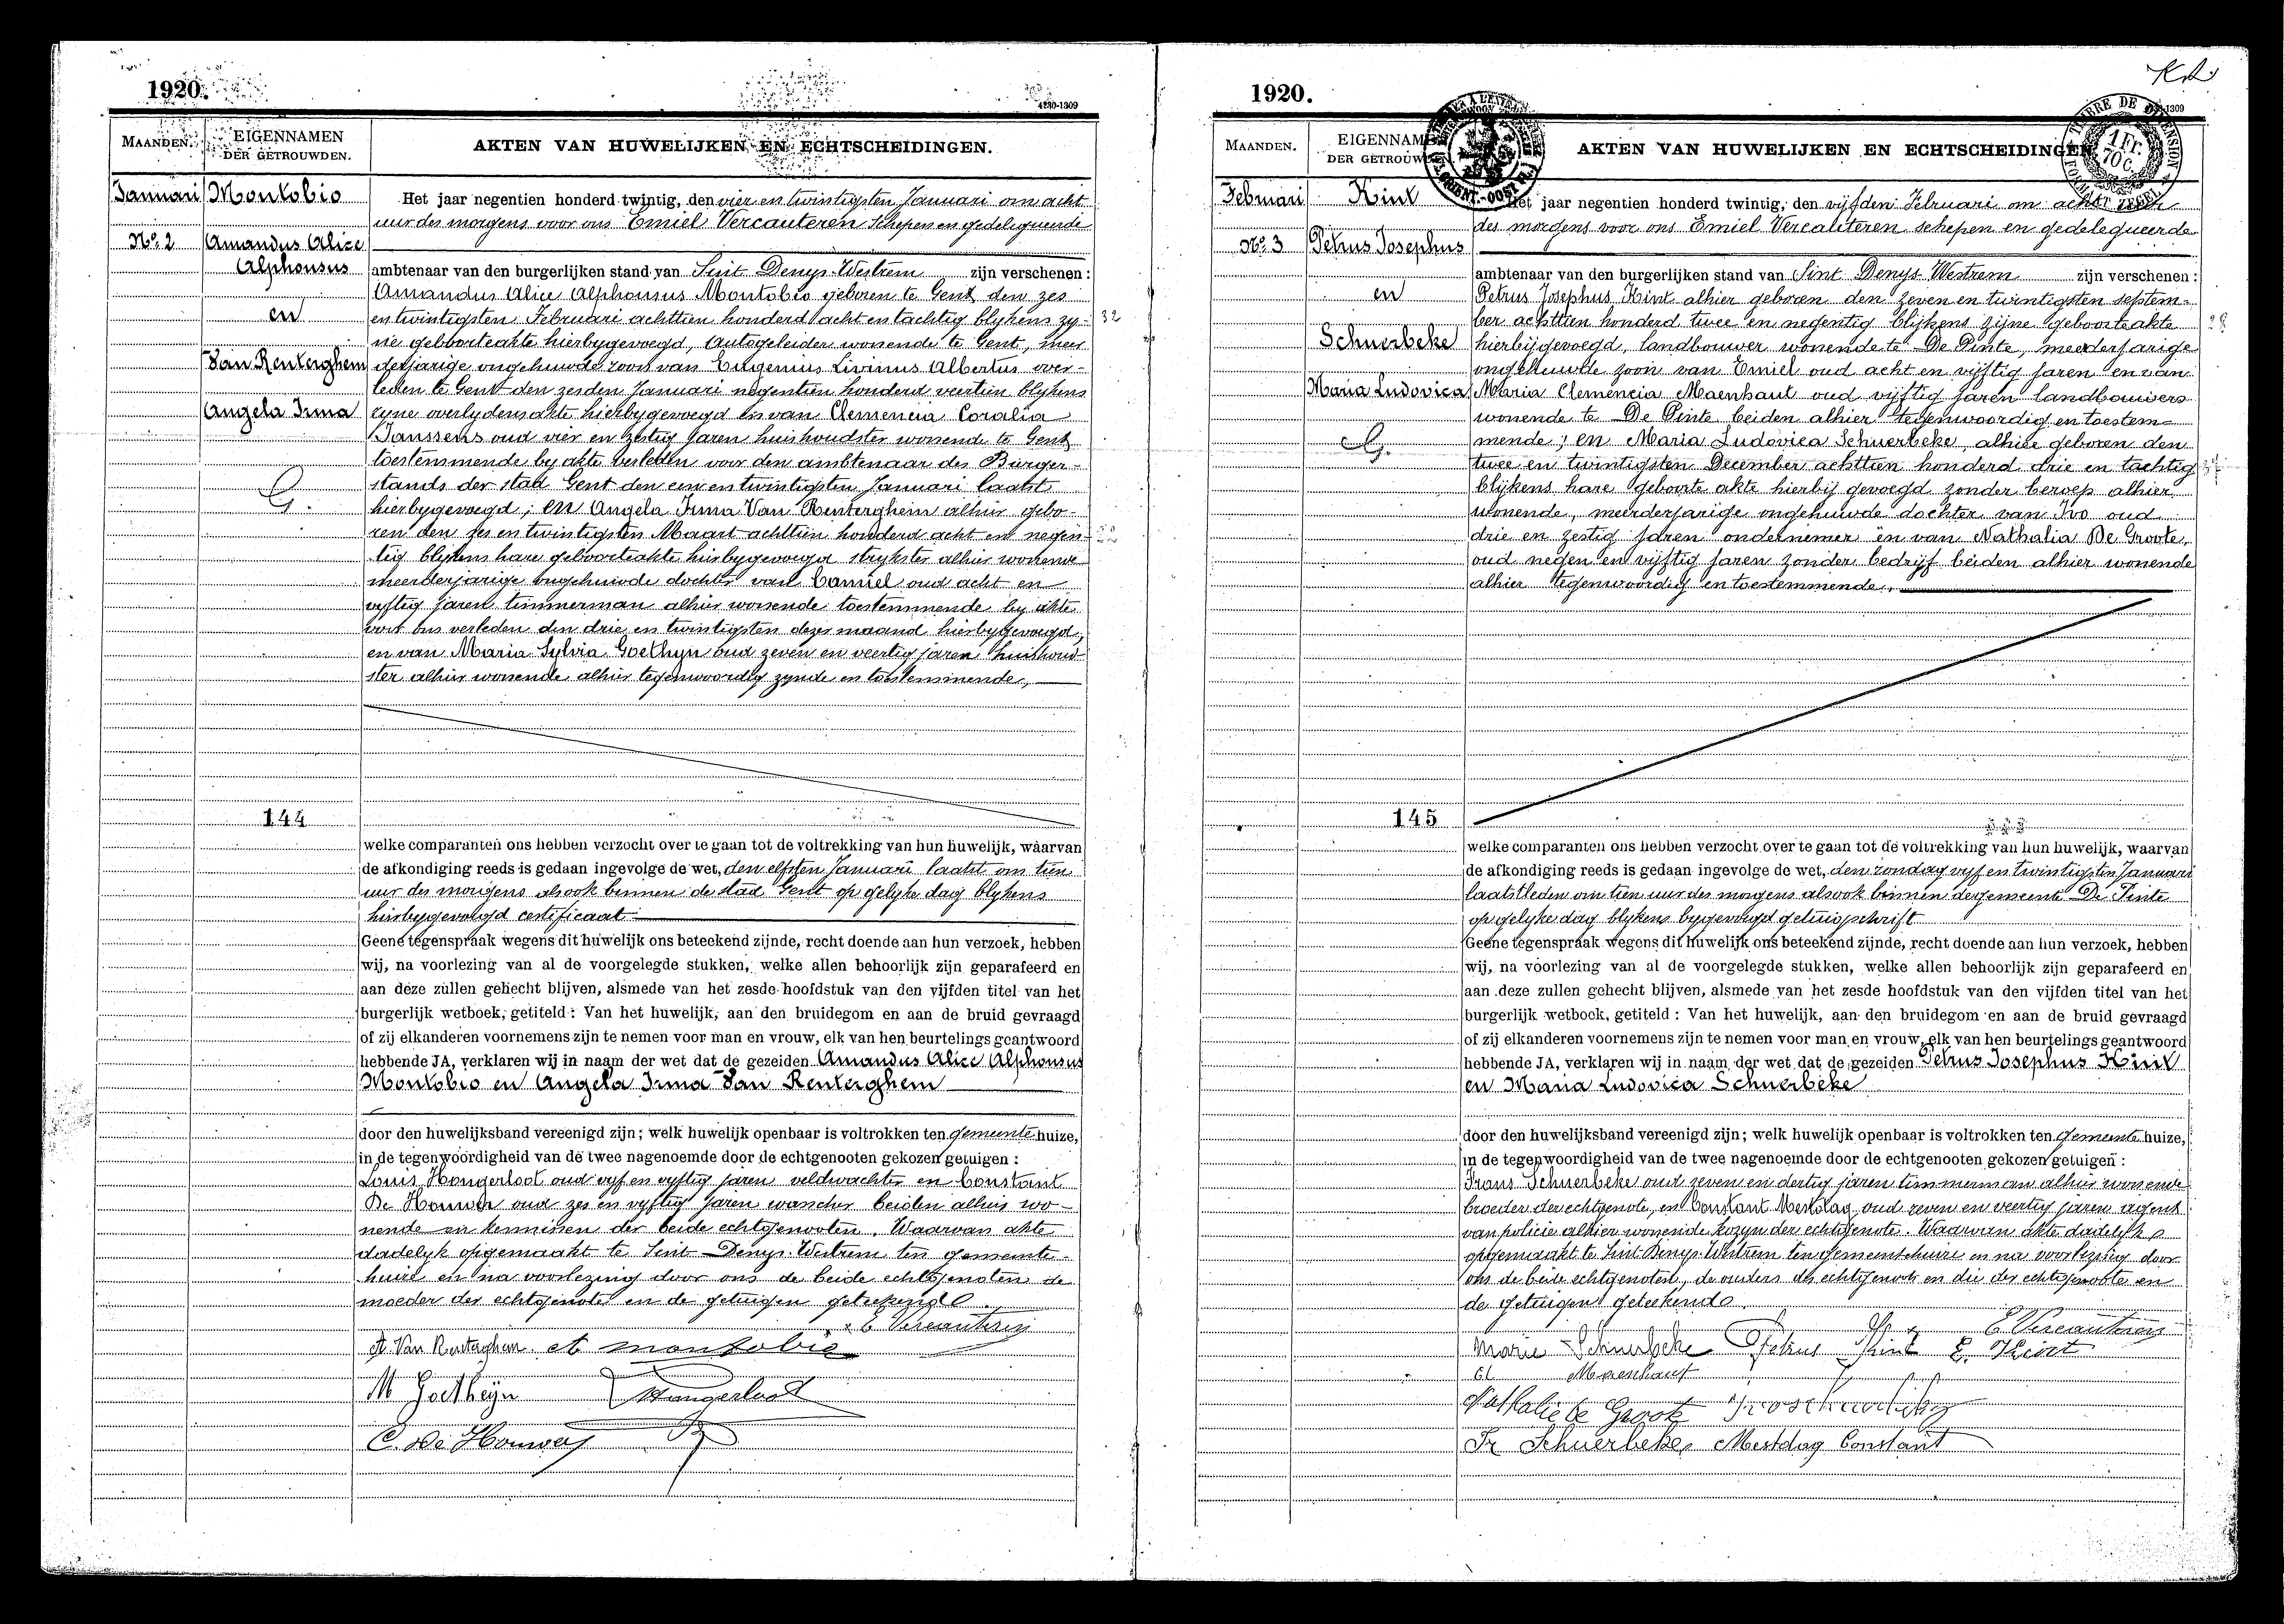 1920.
4230-1309
MAANDEN.
EIGENNAMEN DER GETROUWDEN.
AKTEN VAN HUWELIJKEN EN ECHTSCHEIDINGEN.
Januari
Nº 2
Montobio
Amandus Alice
Alphonsus
en
Van Renterghem
Angela Irma
G.
144
Het jaar negentien honderd twintig, den vier en twintigsten Januari om acht
uur des morgens voor ons Emiel Vercauteren schepen en gedelegueerde
ambtenaar van den burgerlijken stand van Sint Denys-Westrem zijn verschenen :
Amandus Alice Alphonsus Montobio geboren te Gent den zes
en twintigsten Februari achttien honderd acht en tachtig blykens zy-
32
ne geboorteakte hierbygevoegd, Autogeleider wonende te Gent, meer
derjarige ongehuwde zoon van Eugenius Livinus Albertus over-
leden te Gent den zesden Januari negentien honderd veertien blykens
zyne overlydensakte hierbygevoegd en van Clemencia Coralia
Janssens oud vier en zestig jaren huishoudster wonende te Gent
toestemmende by akte verleden voor den ambtenaar des Burger-
stands der stad Gent den een en twintigsten Januari laatst
hierbygevoegd; en Angela Irma Van Renterghem alhier gebo-
ren den zes en twintigsten Maart achttien honderd acht en negen-
tig blykens hare geboorteakte hierbygevoegd strykster alhier wonende
meerderjarige ongehuwde dochter van Camiel oud acht en
vyftig jaren timmerman alhier wonende toestemmende by akte
voor ons verleden den drie en twintigsten dezer maand hierbygevoegd,
en van Maria Sylvia Goethyn oud zeven en veertig jaren huishoud-
ster alhier wonende alhier tegenwoordig zynde en toestemmende,
welke comparanten ons hebben verzocht over te gaan tot de voltrekking van hun huwelijk, waarvan
de afkondiging reeds is gedaan ingevolge de wet, den elfsten Januari laatst om tien
uur des morgens alsook binnen de stad Gent op gelyke dag blykens
hierbygevoegd certificaat
Geene tegenspraak wegens dit huwelijk ons beteekend zijnde, recht doende aan hun verzoek, hebben
wij, na voorlezing van al de voorgelegde stukken, welke allen behoorlijk zijn geparafeerd en
aan deze zullen gehecht blijven, alsmede van het zesde hoofdstuk van den vijfden titel van het
burgerlijk wetboek, getiteld : Van het huwelijk, aan den bruidegom en aan de bruid gevraagd
of zij elkanderen voornemens zijn te nemen voor man en vrouw, elk van hen beurtelings geantwoord
hebbende JA, verklaren wij in naam der wet dat de gezeiden Amandus Alice Alphonsus
Montobio en Angela Irma Van Renterghem
door den huwelijksband vereenigd zijn; welk huwelijk openbaar is voltrokken ten gemeente huize,
in de tegenwoordigheid van de twee nagenoemde door de echtgenooten gekozen getuigen :
Louis Hongerloot oud vyf en vyftig jaren veldwachter en Constant
De Houwer oud zes en vyftig jaren wascher beiden alhier wo-
nende en kennissen der beide echtgenooten. Waarvan akte
dadelyk opgemaakt te Sint Denys-Westrem ten gemeente-
huize en na voorlezing door ons de beide echtgenoten de
moeder der echtgenote en de getuigen geteekend
E Vercauteren
A. Van Renterghem A montobio
M Goetheyn Hongerloot
C. De Houwer
1920.
1309
TIMBRE DE DIMENSION
1 Fr. 70 C.
MAANDEN.
EIGENNAMEN DER GETROUWDEN.
AKTEN VAN HUWELIJKEN EN ECHTSCHEIDINGEN
Februari
Nº 3
Kint
Petrus Josephus
en
Schuerbeke
Maria Ludovica
G.
145
Het jaar negentien honderd twintig, den vijfden Februari om acht uur
des morgens voor ons Emiel Vercauteren schepen en gedelegueerde
ambtenaar van den burgerlijken stand van Sint Denys Westrem zijn verschenen :
Petrus Josephus Kint alhier geboren den zeven en twintigsten septem-
ber achttien honderd twee en negentig blijkens zijne geboorteakte
hierbijgevoegd, landbouwer wonende te De Pinte, meerderjarige
ongehuwde zoon van Emiel oud acht en vijftig jaren en van
Maria Clemencia Maenhaut oud vijftig jaren landbouwers
wonende te De Pinte beiden alhier tegenwoordig en toestem-
mende; en Maria Ludovica Schuerbeke, alhier geboren den
twee en twintigsten December achttien honderd drie en tachtig
blijkens hare geboorte akte hierbij gevoegd zonder beroep alhier
wonende, meerderjarige ongehuwde dochter van Ivo oud
drie en zestig jaren ondernemer en van Nathalia De Groote,
oud negen en vijftig jaren zonder bedrijf beiden alhier wonende
alhier tegenwoordig en toestemmende.
welke comparanten ons hebben verzocht over te gaan tot de voltrekking van hun huwelijk, waarvan
de afkondiging reeds is gedaan ingevolge de wet, den zondag vyf en twintigsten Januari
laatstleden om tien uur des morgens alsook binnen de gemeente De Pinte
op gelyke dag blykens bygevoegd getuigschrift
Geene tegenspraak wegens dit huwelijk ons beteekend zijnde, recht doende aan hun verzoek, hebben
wij, na voorlezing van al de voorgelegde stukken, welke allen behoorlijk zijn geparafeerd en
aan deze zullen gehecht blijven, alsmede van het zesde hoofdstuk van den vijfden titel van het
burgerlijk wetboek, getiteld : Van het huwelijk, aan den bruidegom en aan de bruid gevraagd
of zij elkanderen voornemens zijn te nemen voor man en vrouw, elk van hen beurtelings geantwoord
hebbende JA, verklaren wij in naam der wet dat de gezeiden Petrus Josephus Kint
en Maria Ludovica Schuerbeke
door den huwelijksband vereenigd zijn; welk huwelijk openbaar is voltrokken ten gemeente huize,
in de tegenwoordigheid van de twee nagenoemde door de echtgenooten gekozen getuigen :
Frans Schuerbeke oud zeven en dertig jaren timmerman alhier wonende
broeder der echtgenote, en Constant Mestdag oud zeven en veertig jaren agent
van policie alhier wonende kozyn der echtgenote. Waarvan akte dadelyk
opgemaakt te Sint Denys-Westrem ten gemeentehuize en na voorlezing door
ons de beide echtgenoten, de ouders des echtgenoots en die der echtgenoote en
de getuigen geteekend
E Vercauteren
Marie Schuerbeke Petrus Kint E. Kint
Cl Maenhaut
Nathalie de Groote Ivo Schuerbeke
Fr Schuerbeke Mestdag Constant